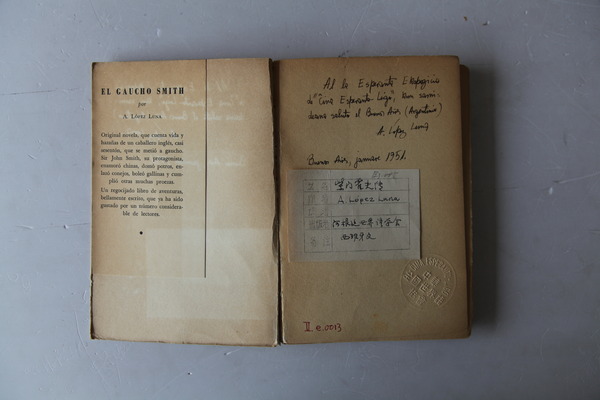 EL GAUCHO SMITH
por
A. López Luna
Original novela, que cuenta vida y
hazañas de un caballero inglés, casi
sesentón, que se metió a gaucho.
Sir John Smith, su protagonista,
enamoró chinas, domó potros, en-
lazó conejos, boleó gallinas y cum-
plió otras muchas proezas.
Un regocijado libro de aventuras,
bellamente escrito, que ya ha sido
gustado por un número considera-
ble de lectores.
Al la Esperanto Ekspozicio
de "Cina Esperanto-Ligo", kun sami-
deana saluto el Buenos Aires (Argentino)
A. López Luna
Buenos Aires, januaro 1951.
A. Lopez Luna
阿根廷世界语学会
西班牙文
II e.0013